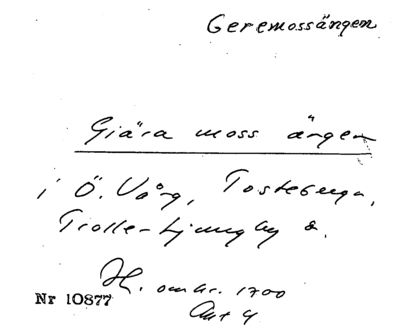 Geremossängen
Giära moss ängen
i Ö. Vång, Tosteberga,
Trolle-Ljungby s.
Hl. omkr. 1700
Akt 4
Nr 10877